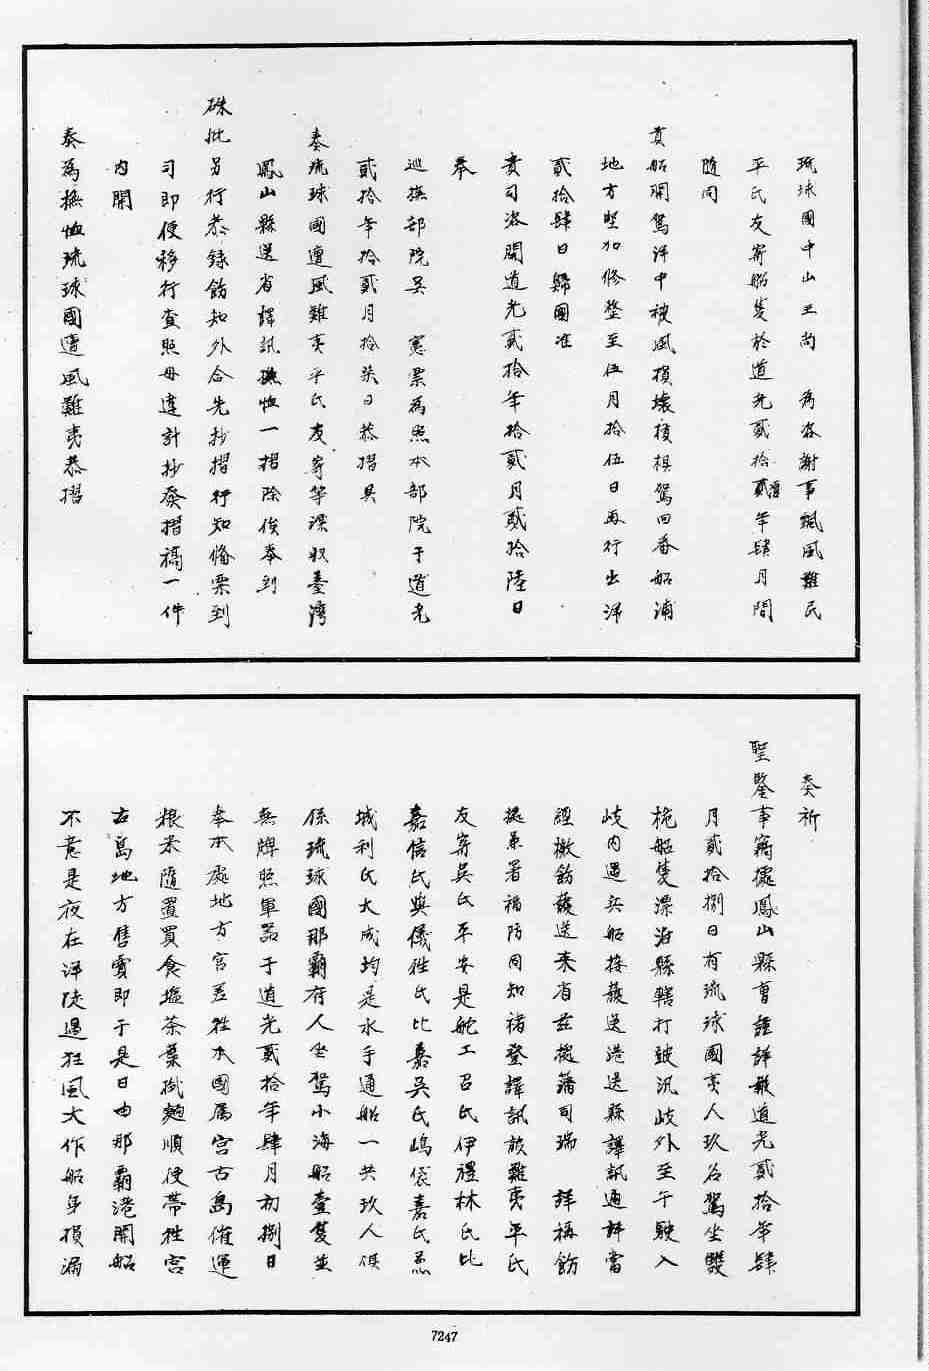 琉球國中山王尚　為咨謝事飄風難民
平氏友寄船隻於道光貳拾貳年肆月間
隨同
貢船開駕洋中被風損壞槓椇駕回番船浦
地方堅加修整至伍月拾伍日再行出洋
貳拾肆日歸國准
貴司咨開道光貳拾年拾貳月貳拾陸日
奉
巡撫部院吳　憲票為照本部院于道光
貳拾年拾貳月拾柒日恭摺具
奏琉球國遭風難夷平氏友寄等漂收臺灣
鳳山縣送省譯訊撫恤一摺除俟奉到
硃批另行恭錄飭知外合先抄摺行知備票到
司即便移行查照毋違計抄發摺稿一件
內開
奏為撫恤琉球國遭風難夷恭摺
奏祈
聖鑒事竊據鳳山縣曹謹詳報道光貳拾年肆
月貳拾捌日有琉球國夷人玖名駕坐雙
桅船隻漂泊縣轄打鼓汛岐外至午駛入
岐內遇兵船接護送港送縣譯訊通詳當
經檄飭護送來省茲據藩司瑞　詳稱飭
據兼署福防同知褚登譯訊該難夷平氏
友寄吳氏平安是舵工召氏伊禮林氏比
嘉信氏與儀牲氏比嘉吳氏嶋袋嘉氏慕
城利氏大成均是水手通船一共玖人俱
係琉球國那霸府人坐駕小海船壹隻並
無牌照軍器于道光貳拾年肆月初捌日
奉本處地方官差往本國屬宮古島催運
粮米隨置買食塩茶葉掛麵順便帶往宮
古島地方售賣即于是日由那霸港開船
不意是夜在洋陡遇狂風大作船身損漏
7247